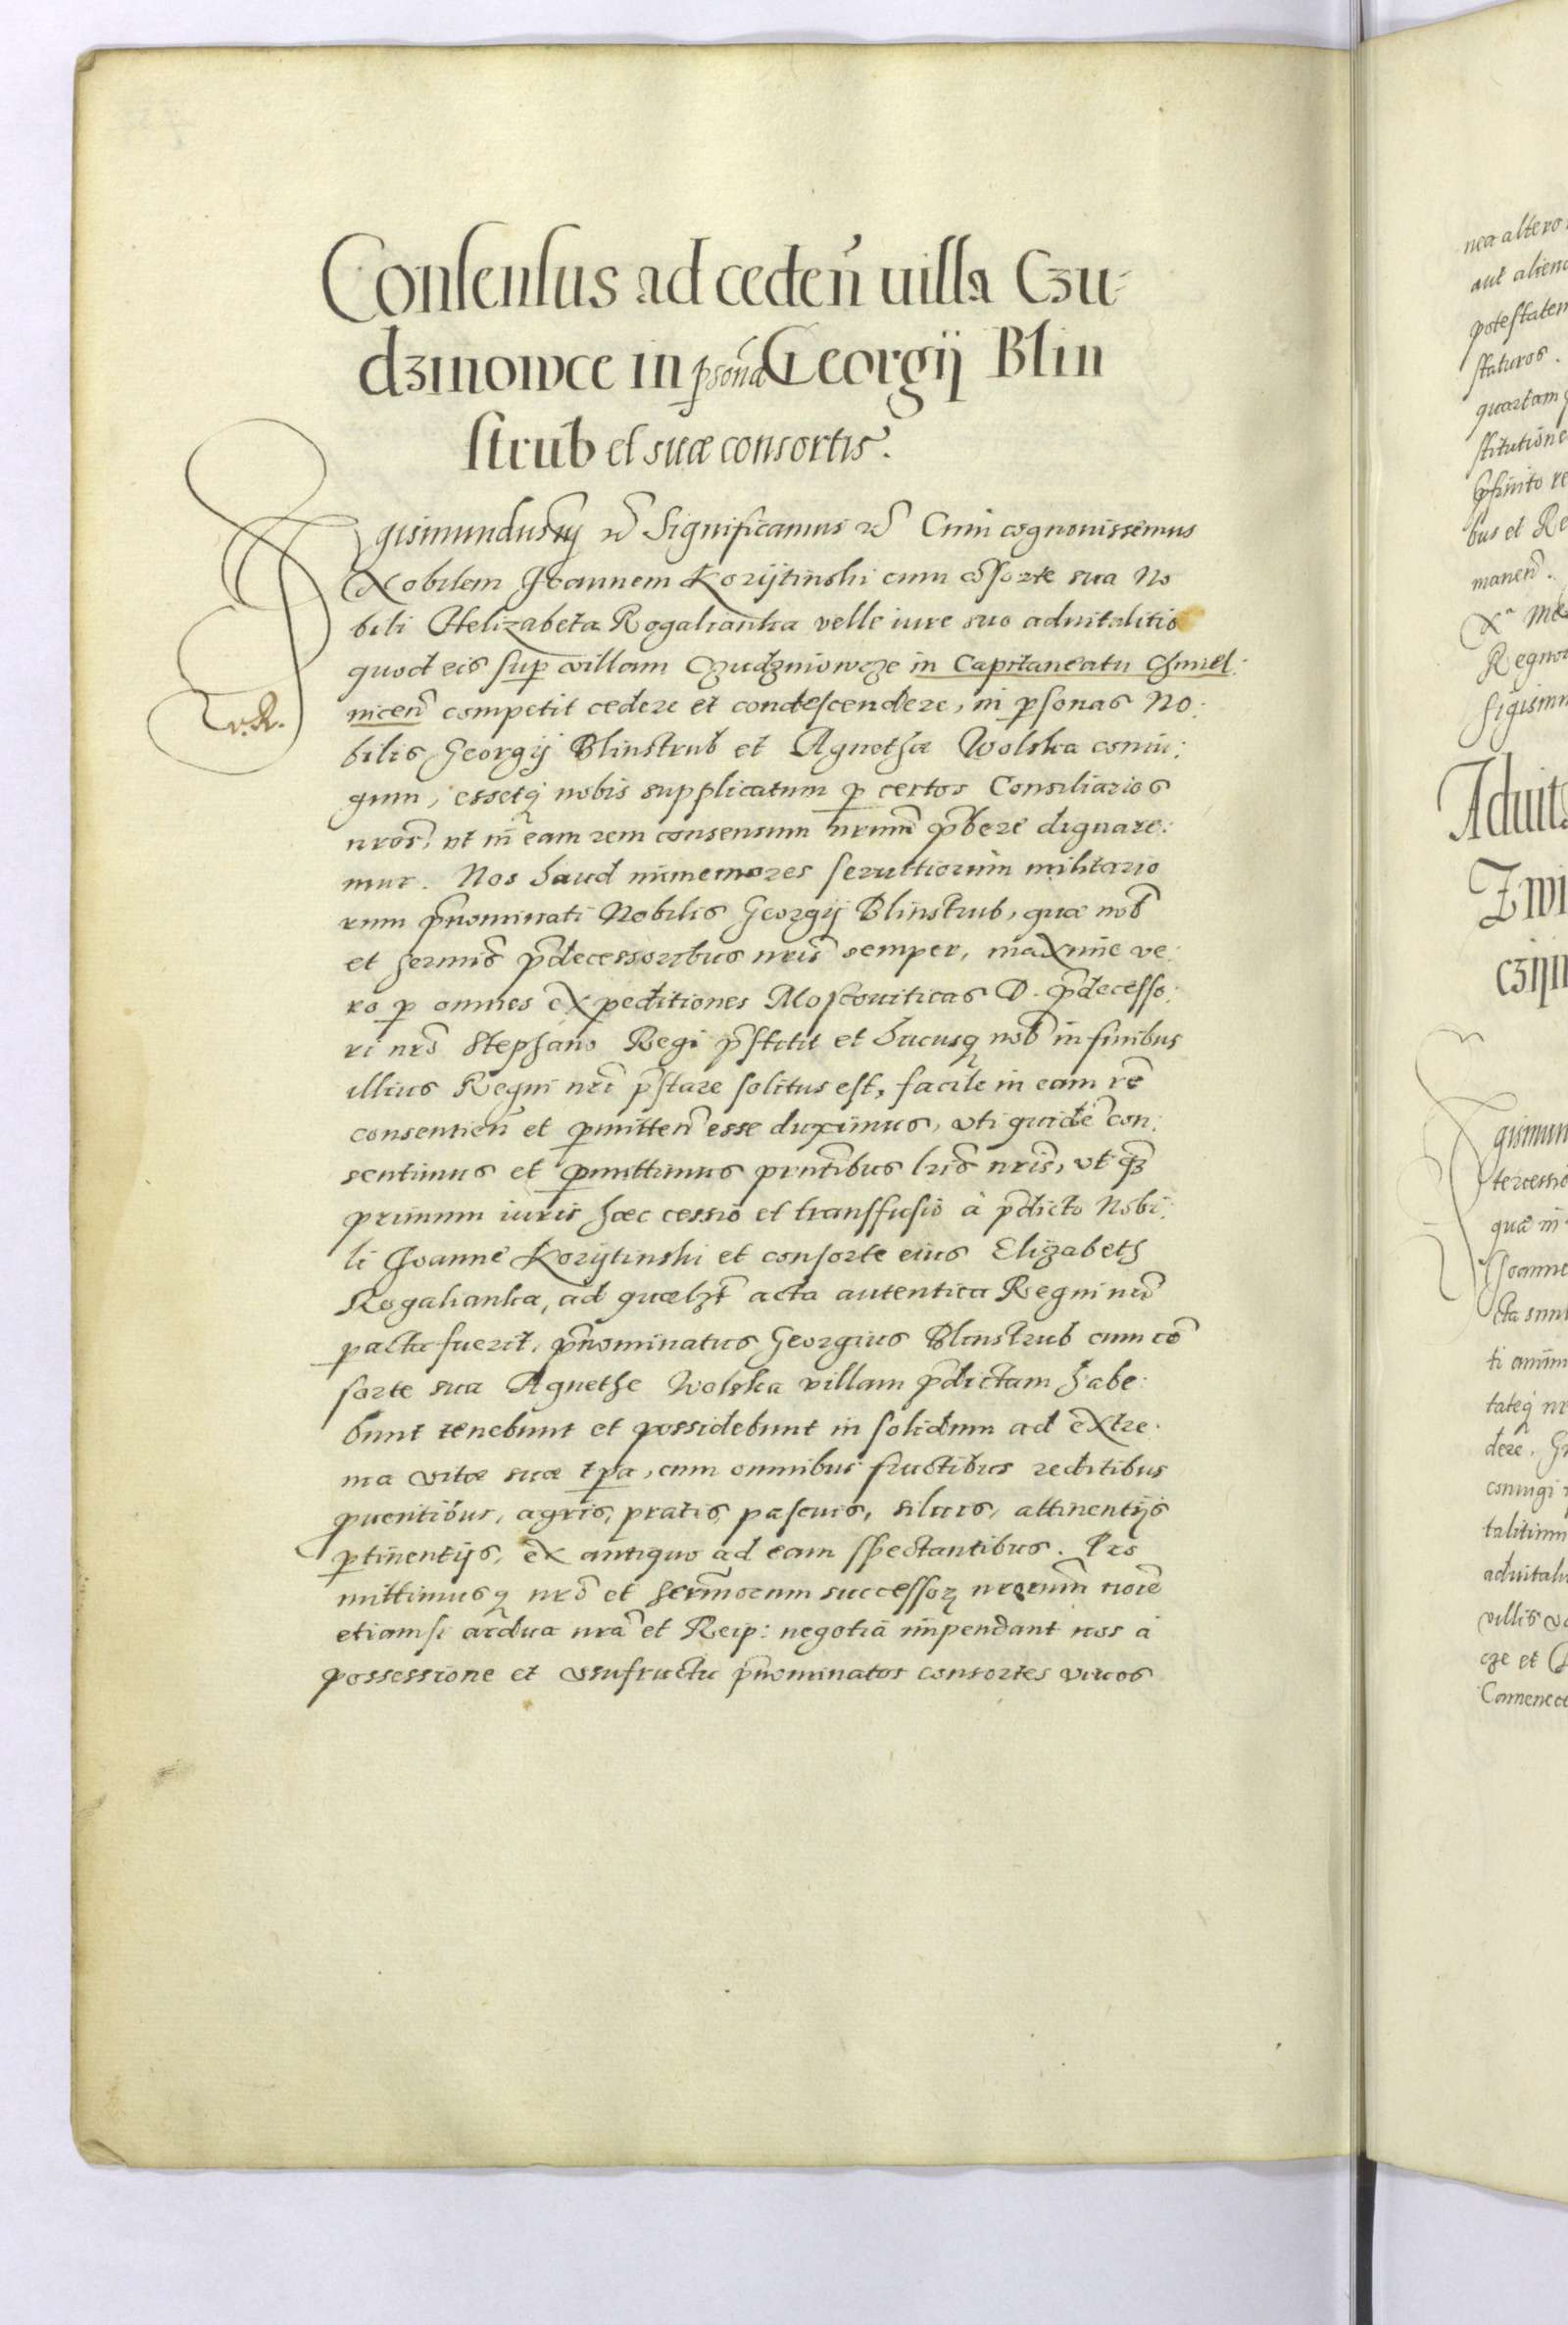 Consensus ad cedeñ uilla Czu-
dzinowce in psonã Georgij Blin
strub et suæ consortis.
Sigismundus iij etc̃ Significamus etc̃ Cum cognouissemus
Nobilem Joannem Korijtinski cum cõsorte sua No
bili Helizabeta Rogalianka velle iure suo aduitalitio
quod eis sup villam Czudzniowcze in Capitaneatu Chmiel:
nicen̄ competit cedere et condescendere, in psonas No:
bilis Georgij Blinstrub et Agnethæ Wolska coniu:
gum, essetq nobis supplicatum p certos Consiliarios
nros̃, vt in eam rem consensum nrum̃ p̃bere dignare:
mur. Nos haud immemores seruitiorum militario
rum p̃nominati Nobilis Georgij Blinstrub, quæ nob̃
et sermis̃ p̃decessoribus nris̃ semper, maxime ve:
ro p omnes expeditiones Moscouiticas D. p̃decesso:
ri nrõ Stephano Regi p̃stitit et hucusq nob̃ in finibus
illius Regni nrĩ p̃stare solitus est, facile in eam rẽ
consentien̄ et pmitten̄ esse duximus, vti quidẽ con:
sentimus et pmittimus pñtibus lris̃ nris̃, vt q̃
primum iuris hæc cessio et transfusio à p̃dicto Nobi:
li Joanne Korijtinski et consorte eius Elizabeth
Rogalianka, ad quælzt̃ acta autentica Regni nrĩ
pacta fuerit, p̃nominatus Georgius Blinstrub cum cõ
sorte sua Agnethe Wolska villam p̃dictam habe:
bunt tenebunt et possidebunt in solidum ad extre:
ma vitæ suæ tpa, cum omnibus fructibus reditibus
puentibus, agris, pratis, pascuis, siluis, attinentijs
ptinentijs, ex antiquo ad eam spectantibus. Pro
mittimusq nrõ et serm̃orum successoꝝ nrorum̃ noĩe
etiamsi ardua nrã et Reip: negotia impendant nos à
possessione et vsufructu p̃nominatos consortes viuos
v.R.
nea altero
aut aliena
potestatem
staturos.
quartam
stitutione
p̃finito re
bus et Re
manen̄.
Regno
Sigism
Aduit
Zwi
czijn
gismun
tercessio
quæ in
Joanne
cta sunt
ti anim
tateq nr
dere.
coniugi
talitium
aduitali
villis
cze et
Camenece